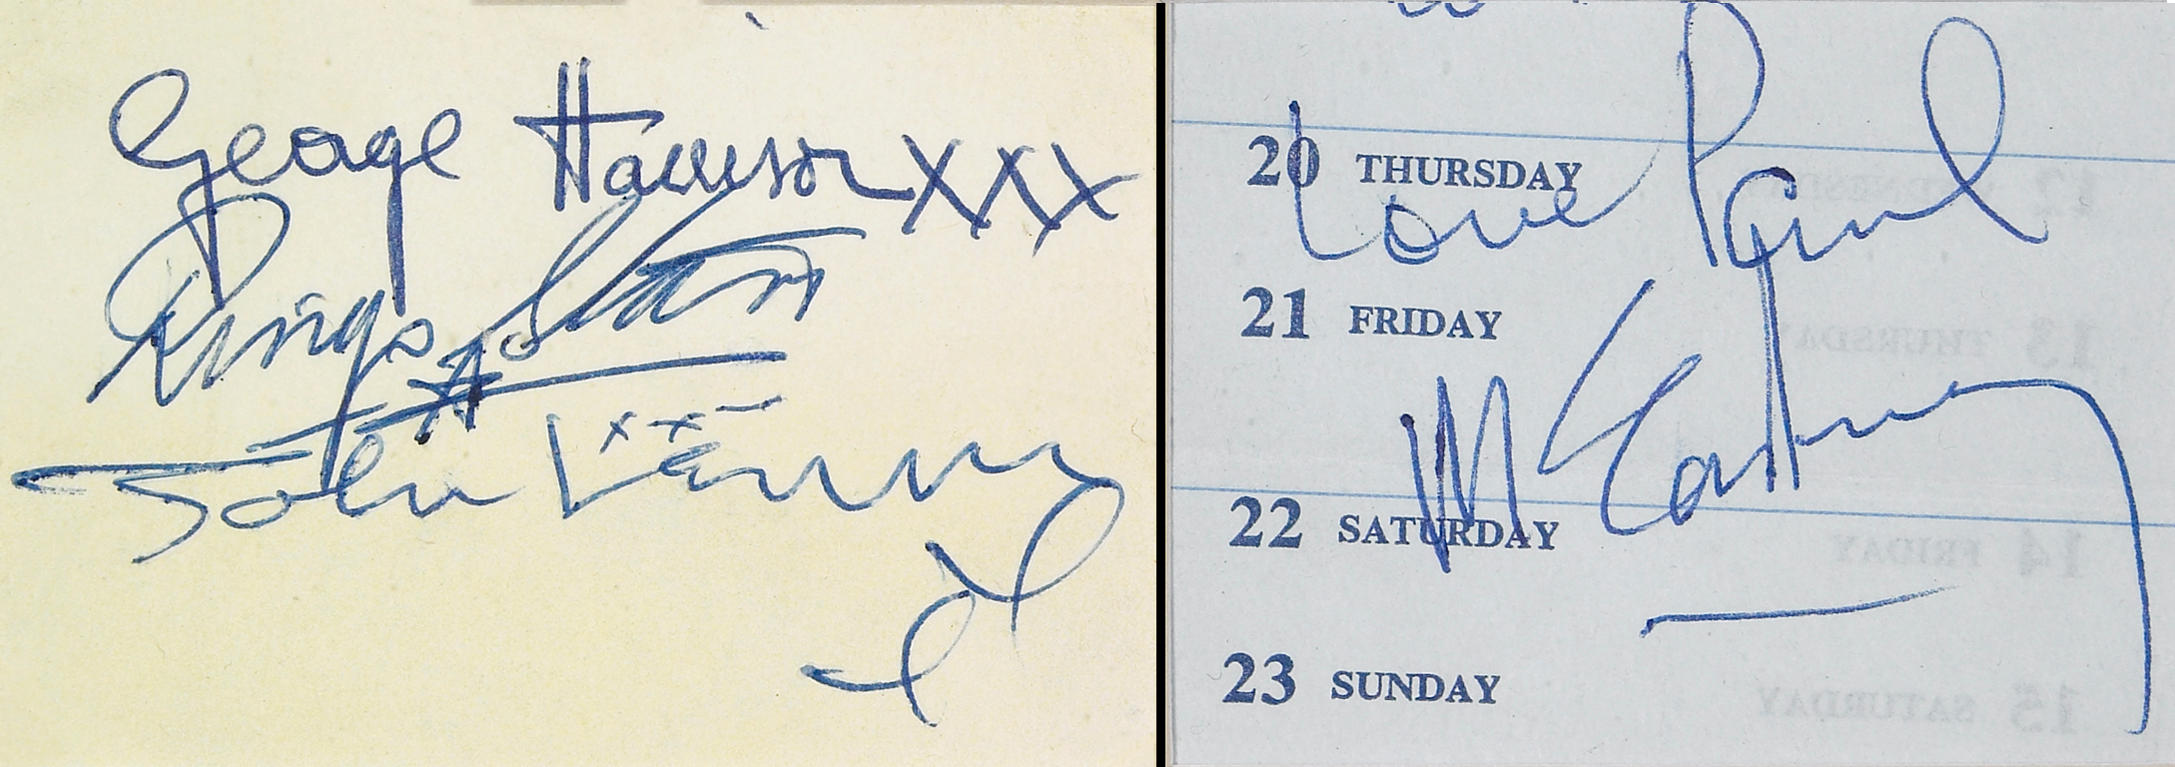 George Harrison xxx
Ringo Starr
xx
John Lennon
20 THURSDAY
Love Paul
21 FRIDAY
McCartney
22 SATURDAY
23 SUNDAY
12 WEDNESDAY
13 THURSDAY
14 FRIDAY
15 SATURDAY